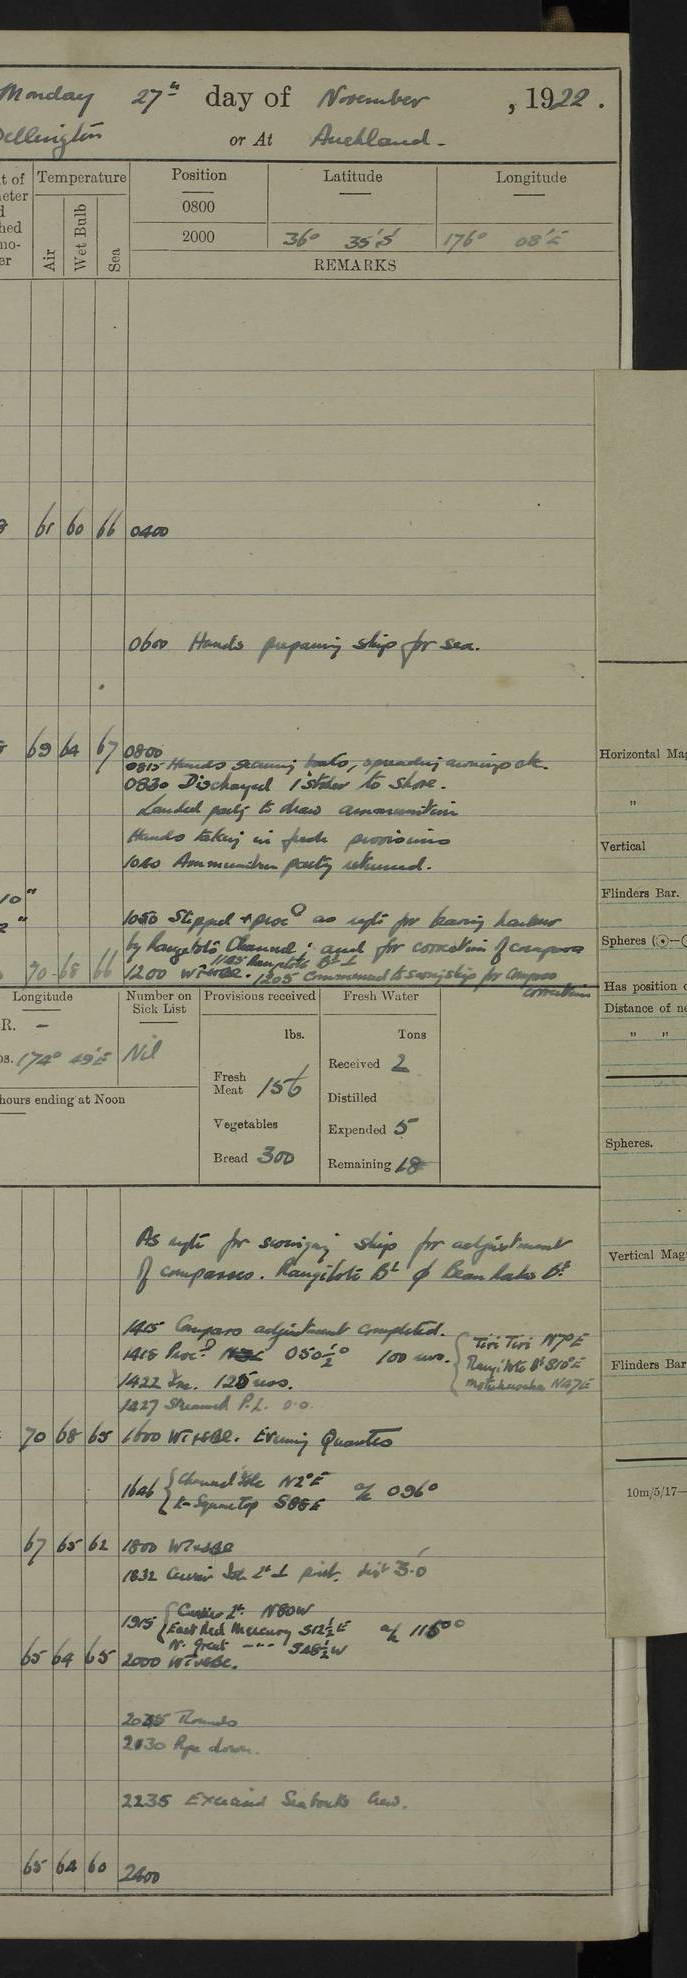 Monday 27th day of November, 1922.
Wellington or At Auckland.
Temperature
Air
Wet Bulb
Sea
Position Latitude Longitude
0800
2000 36° 35'S 176° 08'E
REMARKS
61 60 66 0400
0600 Hands preparing ship for sea.
69 64 67 0800
0815 Hands securing boats, spreading awnings etc.
0830 Discharged 1 stoker to shore.
Landed party to draw ammunition
Hands taking in fresh provisions
1040 Ammunition party returned.
10"
2"
1050 Slipped & procd as reqte for leaving harbour
by Rangitoto Channel; and for correction of compass
1145 Rangitoto Bn
70 68 66 1200 1205 Commenced to swing ship for compass
correction
Longitude
R. —
174° 49'E
Number on Sick List
Nil
Provisions received
lbs.
Fresh Meat 156
Vegetables
Bread 300
Fresh Water
Tons
Received 2
Distilled
Expended 5
Remaining 18
hours ending at Noon
As reqte for swinging ship for adjustment
of compasses. Rangitoto Bn Bean Rocks Bn
1415 Compass adjustment completed.
1418 Procd 050½° 100 revs.
Tiri Tiri N7°E
Rangitoto Bn S10°E
Motuhurakia N47E
1422 Inc. 125 revs.
1427 Streamed P.L. 0.0.
70 68 65 1600 Evening Quarters
1646 Channel Isle N2°E
Square Top S88E a/c 096°
67 65 62 1800
1832 Cuvier Isle Lt port. dist 3.0'
1915 Cuvier Lt. N80W
East Red Mercury S12½E a/c 116°
N. Great S48½W
65 64 65 2000
Rounds
2130 Pipe down.
2235 Exercised Seaboats Crew.
65 64 60 2400
Horizontal Mag
"
Vertical
Flinders Bar.
Spheres
Has position o
Distance of ne
" "
Spheres.
Vertical Mag
Flinders Bar
10m/5/17—